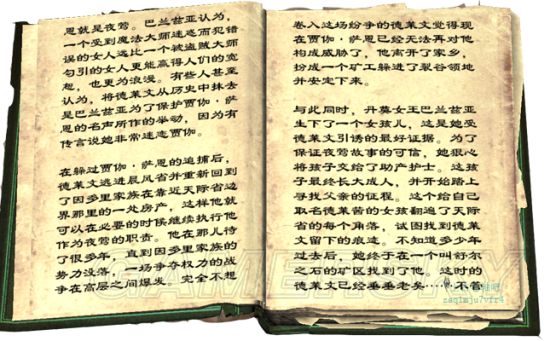 恩就是夜莺。巴兰兹亚认为，
一个受到魔法大师迷惑而犯错
误的女人远比一个被盗贼大师
勾引的女人更能赢得人们的宽
恕，也更为浪漫。有些人甚至
认为，将德莱文从历史中抹去
是巴兰兹亚为了保护贾伽·萨
恩的名声所作的举动，因为有
传言说她非常迷恋贾伽。
在躲过贾伽·萨恩的追捕后，
德莱文逃进晨风省并重新回到
了因多里家族在靠近天际省边
界那里的一处房产，这样他就
可以在必要的时候继续执行他
作为夜莺的职责。他在那儿待
了很多年，直到因多里家族的
势力没落，一场争夺权力的战
争在高层之间爆发。完全不想
卷入这场纷争的德莱文觉得现
在贾伽·萨恩已经无法再对他
构成威胁了，他离开了家乡，
扮成一个矿工躲进了裂谷领地
并安定下来。
与此同时，丹莫女王巴兰兹亚
生下了一个女孩儿，这是她受
德莱文引诱的最好证据。为了
保证夜莺故事的可信，她狠心
将孩子交给了助产护士。这孩
子最终长大成人，并开始踏上
寻找父亲的征程。这个给自己
取名德莱茜的女孩翻遍了天际
省的每个角落，试图找到德莱
文留下的痕迹。不知道多少年
过去后，她终于在一个叫舒尔
之石的矿区找到了他，这时的
德莱文已经垂垂老矣……不管
GAMERSKY
zsq1mju7vfr4